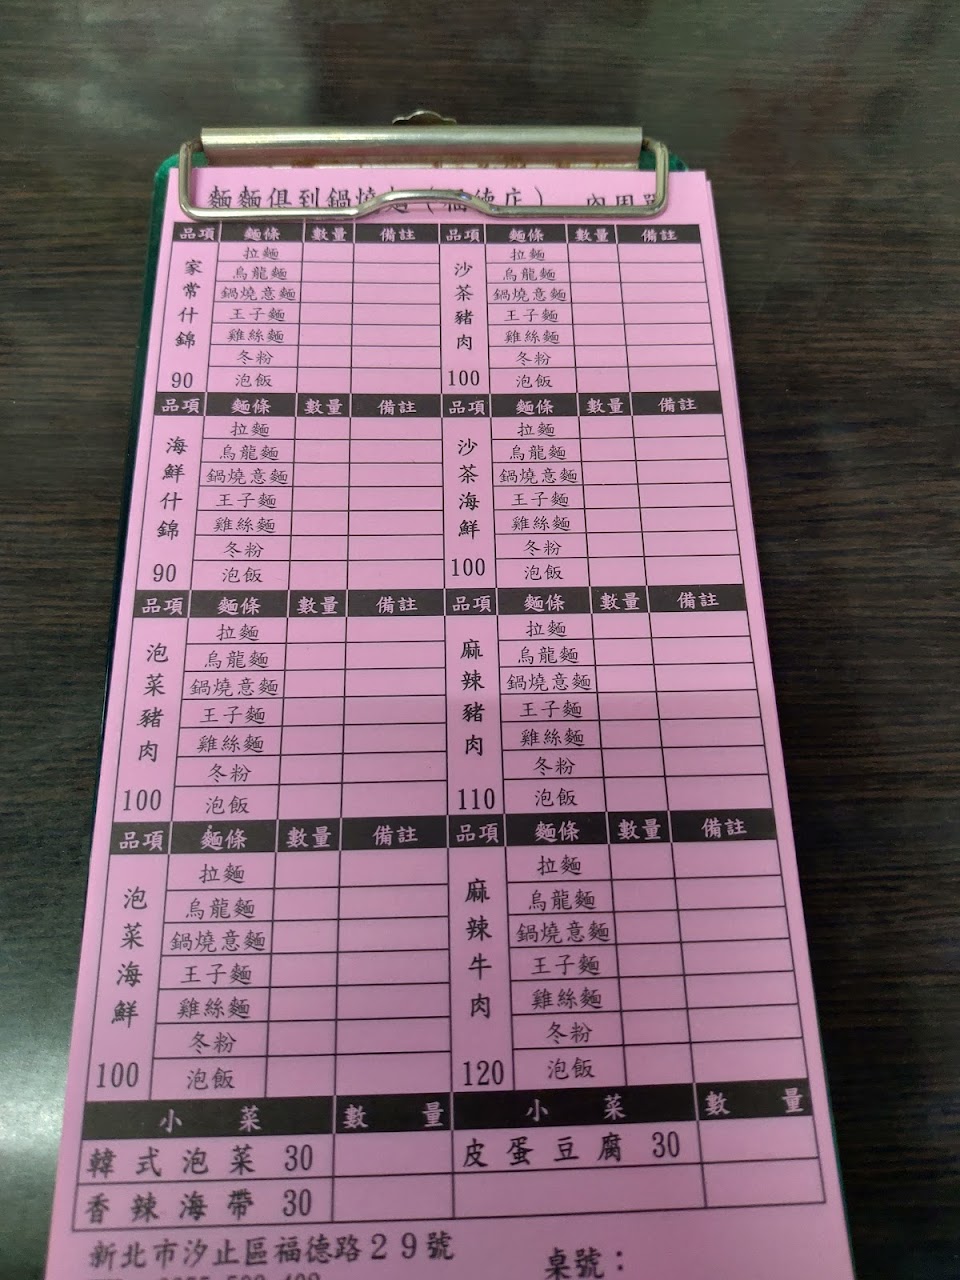 麵麵俱到鍋燒麵（福德店） 內用單
品項 麵條 數量 備註 品項 麵條 數量 備註
家常什錦 90 沙茶豬肉 100
拉麵 拉麵
烏龍麵 烏龍麵
鍋燒意麵 鍋燒意麵
王子麵 王子麵
雞絲麵 雞絲麵
冬粉 冬粉
泡飯 泡飯
品項 麵條 數量 備註 品項 麵條 數量 備註
海鮮什錦 90 沙茶海鮮 100
拉麵 拉麵
烏龍麵 烏龍麵
鍋燒意麵 鍋燒意麵
王子麵 王子麵
雞絲麵 雞絲麵
冬粉 冬粉
泡飯 泡飯
品項 麵條 數量 備註 品項 麵條 數量 備註
泡菜豬肉 100 麻辣豬肉 110
拉麵 拉麵
烏龍麵 烏龍麵
鍋燒意麵 鍋燒意麵
王子麵 王子麵
雞絲麵 雞絲麵
冬粉 冬粉
泡飯 泡飯
品項 麵條 數量 備註 品項 麵條 數量 備註
泡菜海鮮 100 麻辣牛肉 120
拉麵 拉麵
烏龍麵 烏龍麵
鍋燒意麵 鍋燒意麵
王子麵 王子麵
雞絲麵 雞絲麵
冬粉 冬粉
泡飯 泡飯
小菜 數量 小菜 數量
韓式泡菜 30 皮蛋豆腐 30
香辣海帶 30
新北市汐止區福德路29號 桌號：